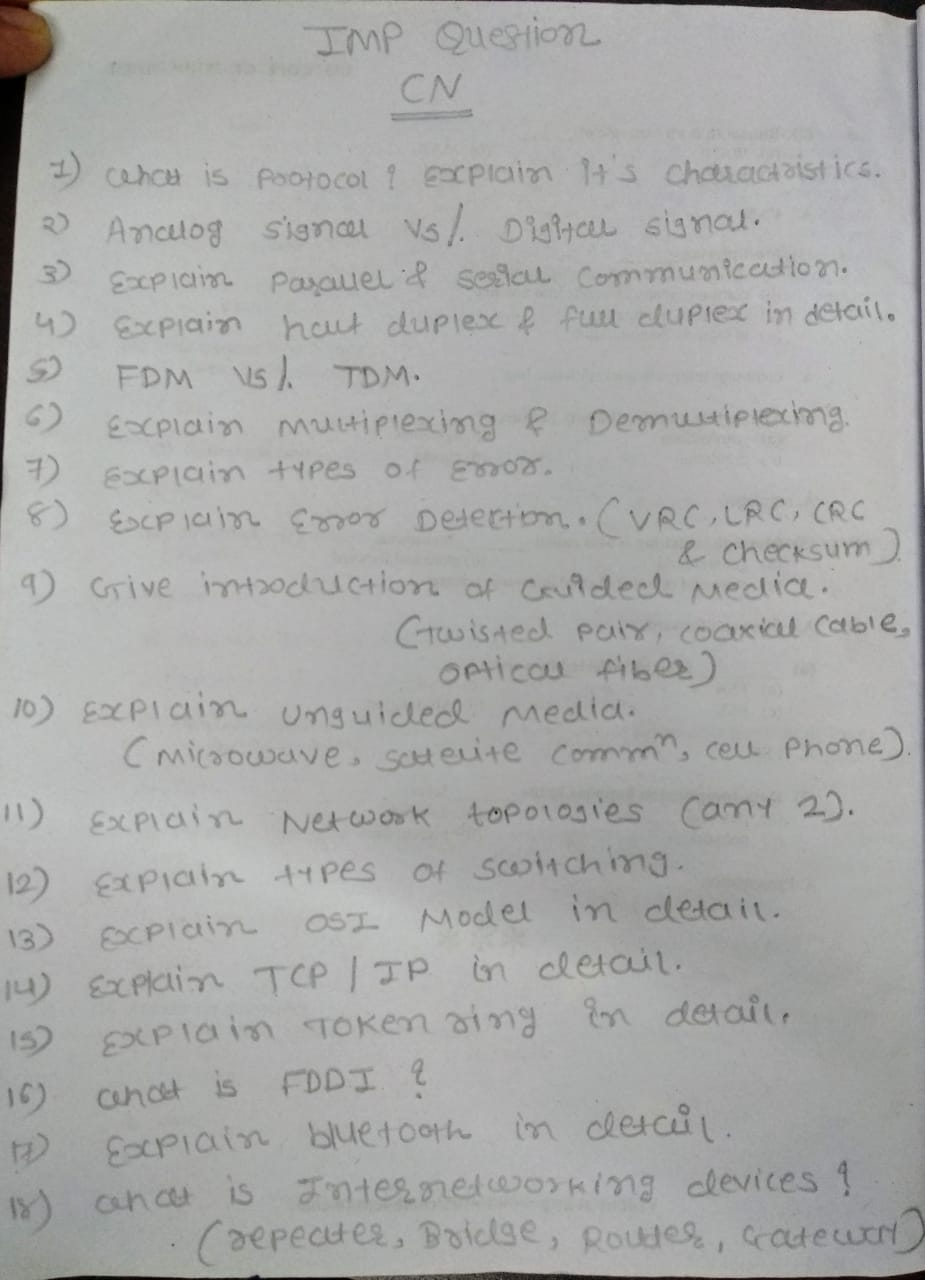 IMP Question
CN
1) what is protocol ? Explain it's characteristics.
2) Analog signal Vs/. Digital signal.
3) Explain Parallel & serial communication.
4) Explain half duplex & full duplex in detail.
5) FDM Vs/. TDM.
6) Explain multiplexing & Demultiplexing.
7) Explain types of Error.
8) Explain Error Detection. (VRC, LRC, CRC
& checksum)
9) Give introduction of Guided Media.
(twisted pair, coaxial cable,
optical fiber)
10) Explain unguided media.
(microwave, satelite commⁿ, cell phone).
11) Explain Network topologies (any 2).
12) Explain types of switching.
13) Explain OSI Model in detail.
14) Explain TCP / IP in detail.
15) Explain Token ring in detail.
16) what is FDDI ?
17) Explain bluetooth in detail.
18) what is Internetworking devices ?
(repeater, Bridge, Router, Gateway)